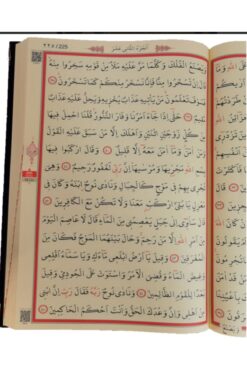 ٢٢٥/225 اَلْجُزْءُ الثَّانِي عَشَرَ
وَيَصْنَعُ الْفُلْكَ وَكُلَّمَا مَرَّ عَلَيْهِ مَلَاٌ مِنْ قَوْمِهِ سَخِرُوا مِنْهُ
قَالَ اِنْ تَسْخَرُوا مِنَّا فَاِنَّا نَسْخَرُ مِنْكُمْ كَمَا تَسْخَرُونَ
فَسَوْفَ تَعْلَمُونَ مَنْ يَاْتِيهِ عَذَابٌ يُخْزِيهِ وَيَحِلُّ عَلَيْهِ عَذَابٌ
مُقِيمٌ حَتّٰى اِذَا جَاءَ اَمْرُنَا وَفَارَ التَّنُّورُ قُلْنَا احْمِلْ فِيهَا
مِنْ كُلٍّ زَوْجَيْنِ اثْنَيْنِ وَاَهْلَكَ اِلَّا مَنْ سَبَقَ عَلَيْهِ الْقَوْلُ
وَمَنْ اٰمَنَ وَمَا اٰمَنَ مَعَهُ اِلَّا قَلِيلٌ وَقَالَ ارْكَبُوا فِيهَا
بِسْمِ اللّٰهِ مَجْرٰيهَا وَمُرْسٰيهَا اِنَّ رَبِّي لَغَفُورٌ رَحِيمٌ وَهِيَ
تَجْرِي بِهِمْ فِي مَوْجٍ كَالْجِبَالِ وَنَادٰى نُوحٌ ابْنَهُ وَكَانَ فِي
مَعْزِلٍ يَا بُنَيَّ ارْكَبْ مَعَنَا وَلَا تَكُنْ مَعَ الْكَافِرِينَ
قَالَ سَاٰوِي اِلٰى جَبَلٍ يَعْصِمُنِي مِنَ الْمَاءِ قَالَ لَا عَاصِمَ الْيَوْمَ
مِنْ اَمْرِ اللّٰهِ اِلَّا مَنْ رَحِمَ وَحَالَ بَيْنَهُمَا الْمَوْجُ فَكَانَ مِنَ
الْمُغْرَقِينَ وَقِيلَ يَا اَرْضُ ابْلَعِي مَاءَكِ وَيَا سَمَاءُ اَقْلِعِي
وَغِيضَ الْمَاءُ وَقُضِيَ الْاَمْرُ وَاسْتَوَتْ عَلَى الْجُودِيِّ وَقِيلَ
بُعْدًا لِلْقَوْمِ الظَّالِمِينَ وَنَادٰى نُوحٌ رَبَّهُ فَقَالَ رَبِّ اِنَّ ابْنِي
مِنْ اَهْلِي وَاِنَّ وَعْدَكَ الْحَقُّ وَاَنْتَ اَحْكَمُ الْحَاكِمِينَ